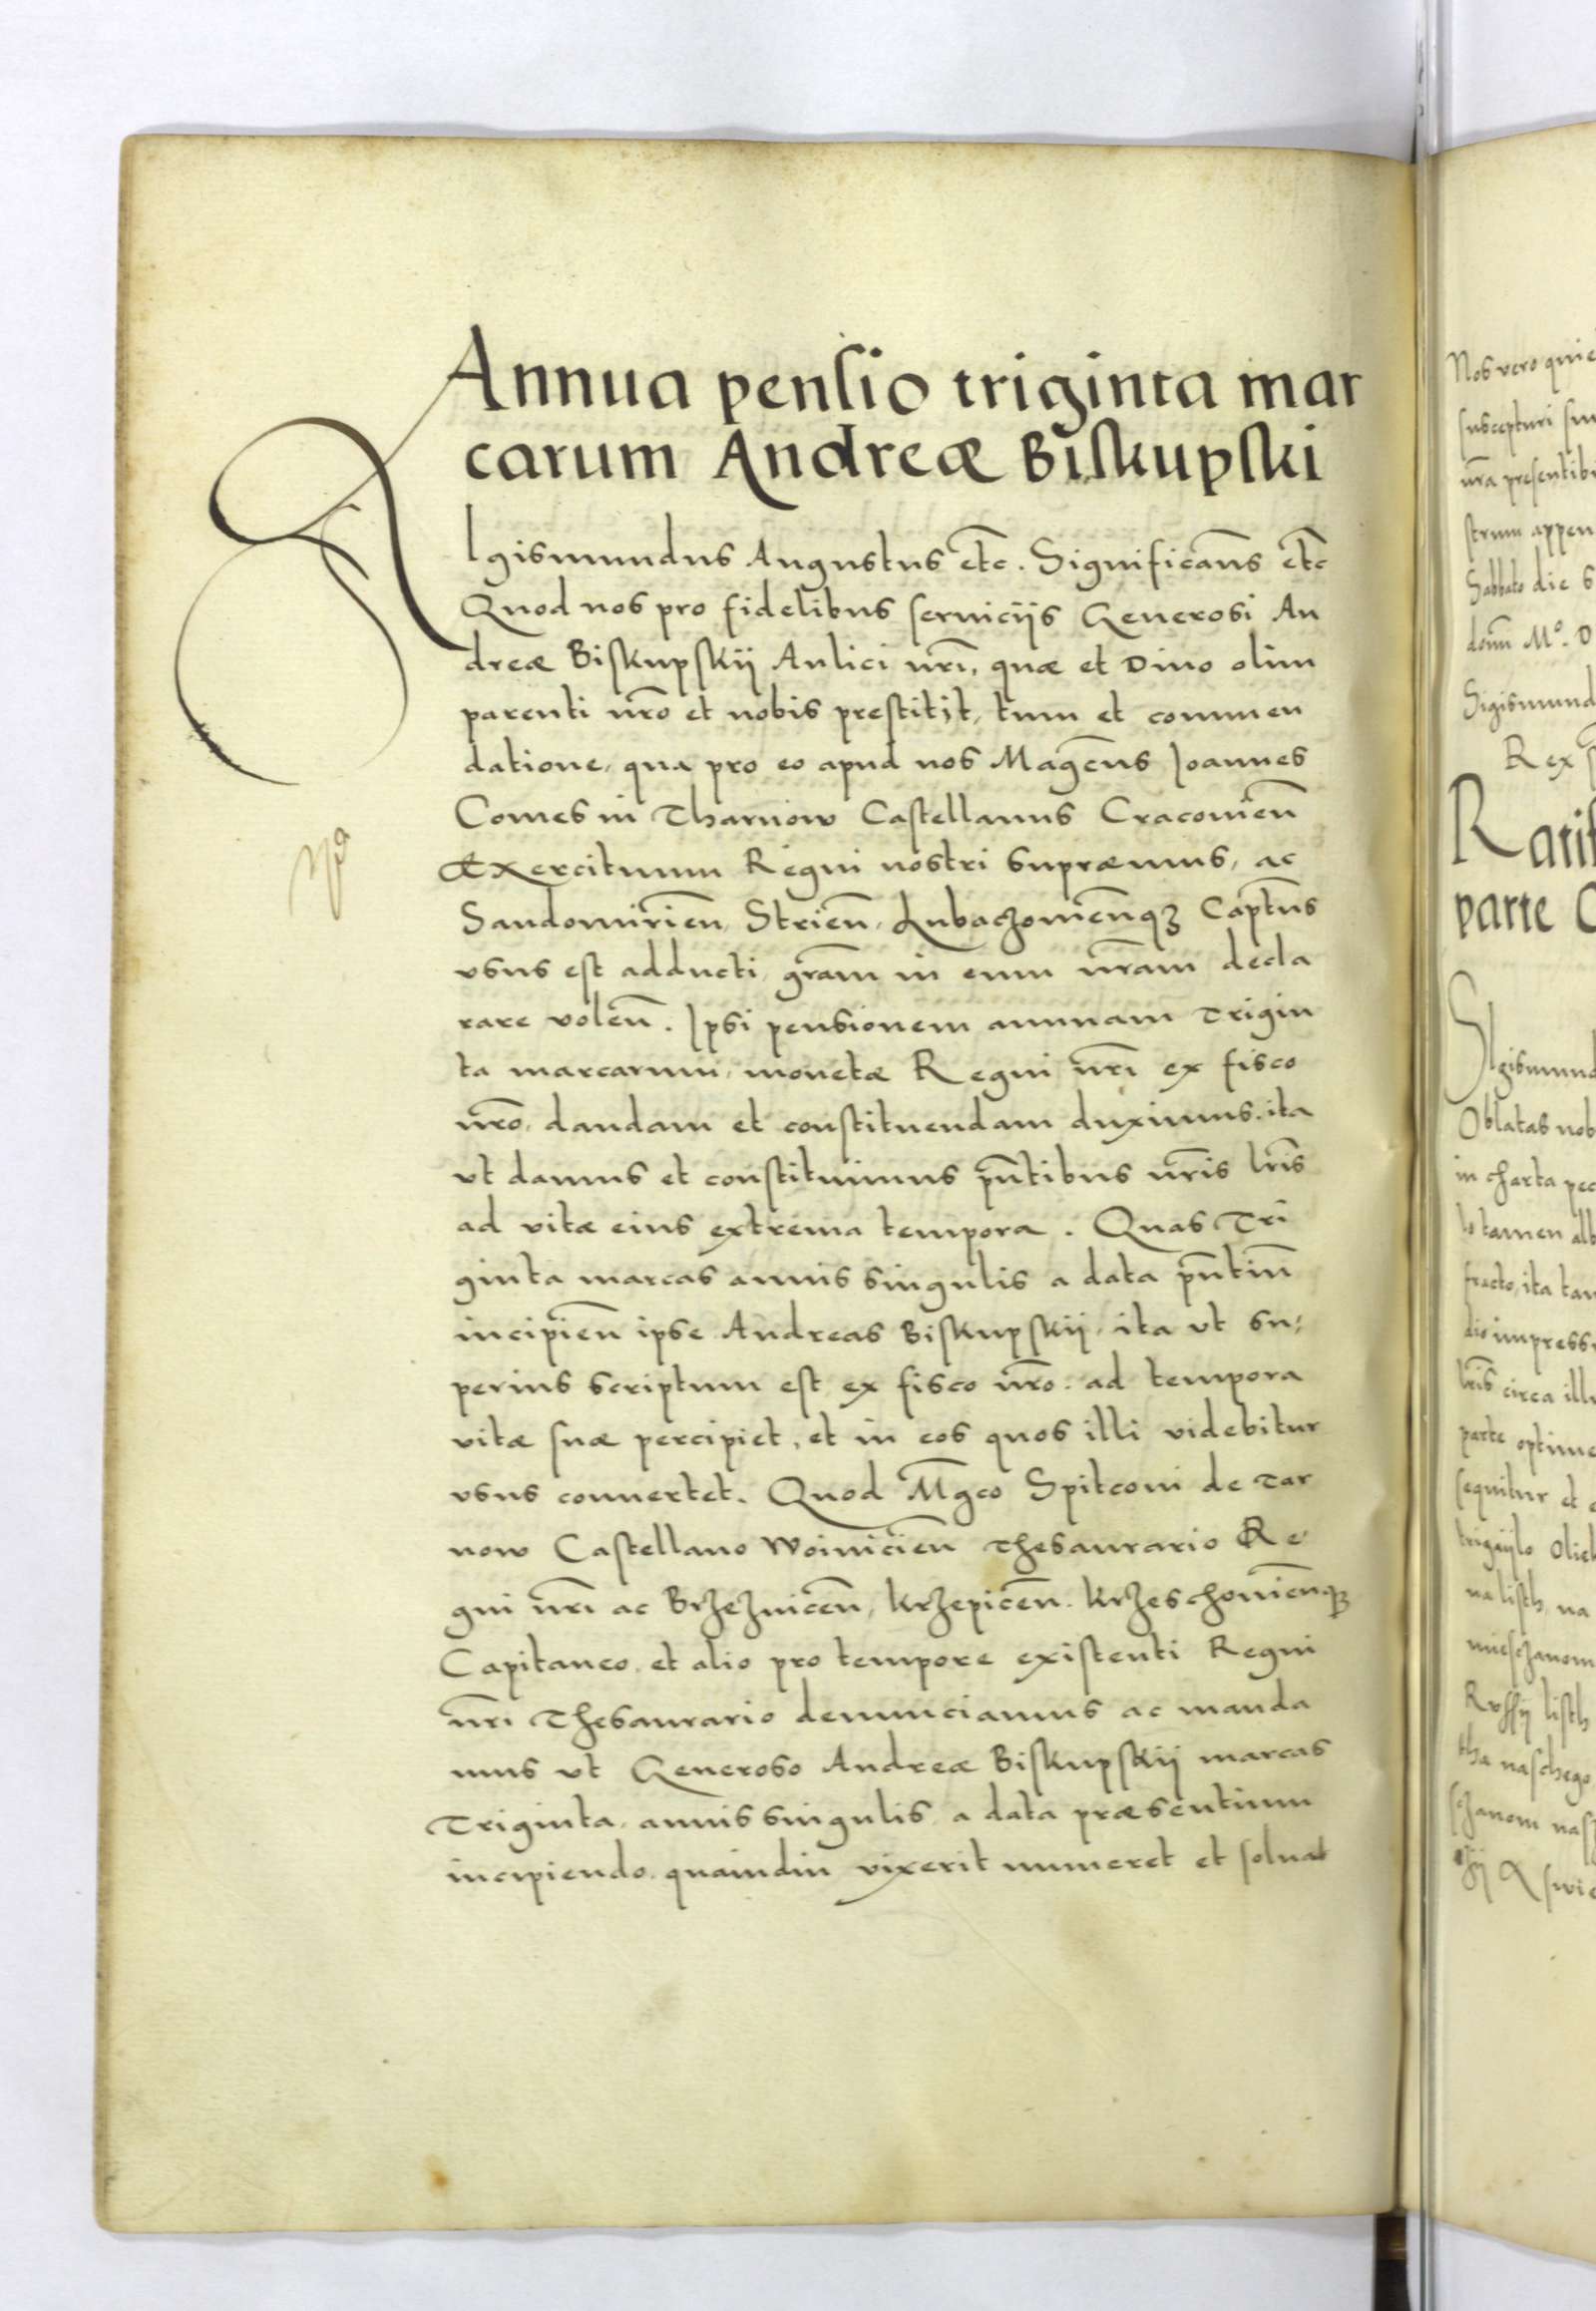 Annua pensio triginta mar
carum Andreæ Biskupski
Sigismundus Augustus etc. Significam̄s etc
Quod nos pro fidelibus seruicijs Generosi An
dreæ Biskupskij Aulici nr̄i, quæ et Diuo olim
parenti nr̄o et nobis prestitit, tum et commen
datione, qua pro eo apud nos Magc̄us Ioannes
Comes in Tharnow Castellanus Cracouien̄
Exercituum Regni nostri supræmus, ac
Sandomirien̄, Strien̄, Lubaczouien̄qꝫ Capt̄us
vsus est adducti, gr̄am in eum nr̄am decla
rare volen̄. Ipsi pensionem annuam Trigin
ta marcarum, monetæ Regni nr̄i ex fisco
nr̄o, dandam et constituendam duximus. ita
vt damus et constituimus pn̄tibus nr̄is lr̄is
ad vitæ eius extrema tempora. Quas Tri
ginta marcas annis singulis a data pn̄tiu̅
incipien̄ ipse Andreas Biskupskij, ita vt su:
perius scriptum est ex fisco nr̄o. ad tempora
vitæ suæ percipiet, et in eos quos illi videbitur
vsus conuertet. Quod Mg̅co Spitconi de Tar
now Castellano Woinicien̄ Thesaurario Re
gni nr̄i ac Brzeznicen̄, Krzepicen̄. Krzeschouicen̄qꝫ
Capitaneo, et alio pro tempore existenti Regni
nr̄i Thesaurario denunciamus ac manda
mus vt Generoso Andreæ Biskupskij marcas
Triginta, annis singulis, a data præsentium
incipiendo, quamdiu vixerit numeret et soluat
Nos vero quie
suscepturi su
nr̄a presentib
strum appen
Sabbato die 6
domī M.º D
Sigismund
Rex
Ratif
parte C
Sigismund
Oblatas nob
in charta pec
lo tamen alb
fracto, ita tam
dio impress
lr̄is circa ill
parte optime
sequitur et
Olie
na listh, na
mieschanom
Russij listh
tha naschego
schanom nas